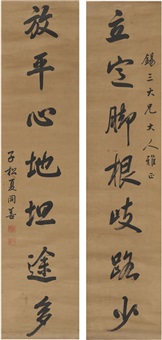 錫三大兄大人雅正
立定脚根歧路少
放平心地坦途多
子松夏同善